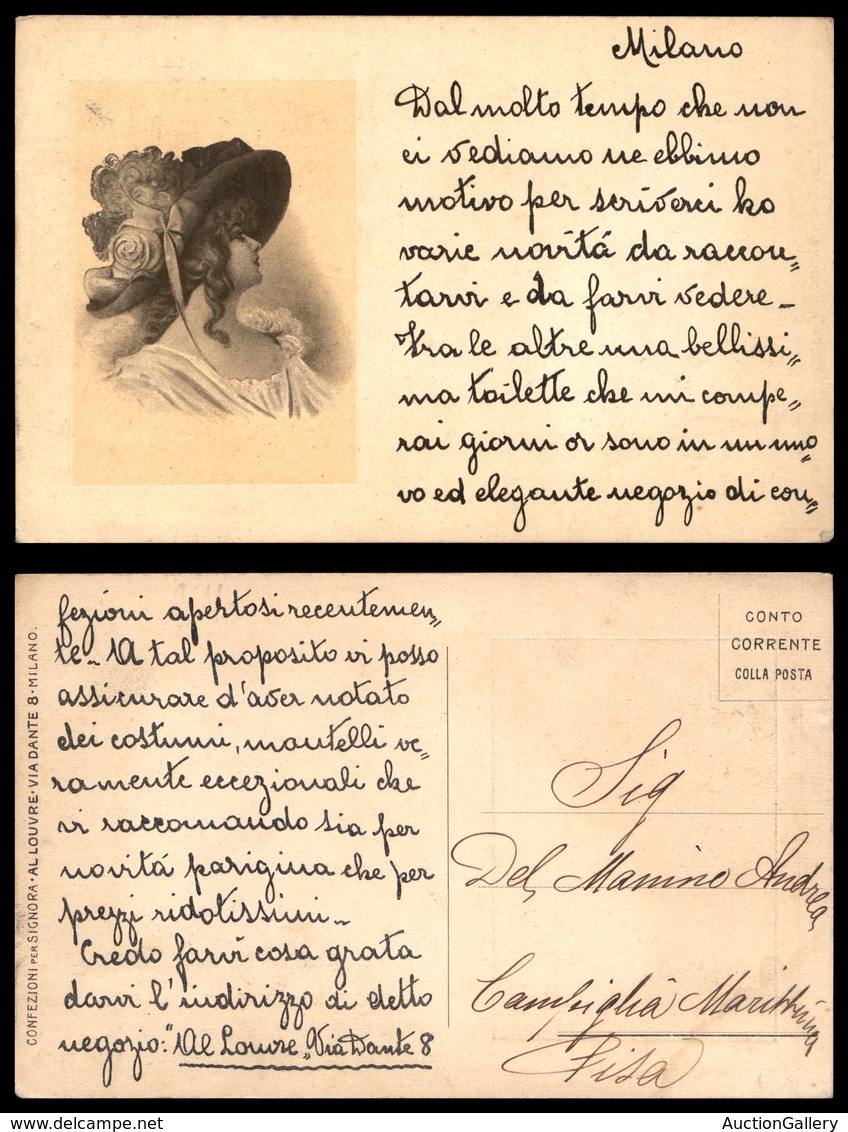 Milano
Dal molto tempo che non
ci vediamo ne ebbimo
motivo per scriverci ho
varie novitá da raccon„
tarvi e da farvi vedere_
Fra le altre una bellissi„
ma toilette che mi compe„
rai giorni or sono in un nuo„
vo ed elegante negozio di con„
fezioni apertosi recentemen„
te_ A tal proposito vi posso
assicurare d'aver notato
dei costumi, mantelli ve„
ramente eccezionali che
vi raccomando sia per
novitá parigina che per
prezzi ridotissimi_
Credo farvi cosa grata
darvi l'indirizzo di detto
negozio: "Al Louvre„ Via Dante 8
CONFEZIONI PER SIGNORA · AL LOUVRE · VIA DANTE 8 · MILANO.
CONTO
CORRENTE
COLLA POSTA
Sig
Del Manino Andrea
Campiglia Marittima
Pisa
AuctionGallery